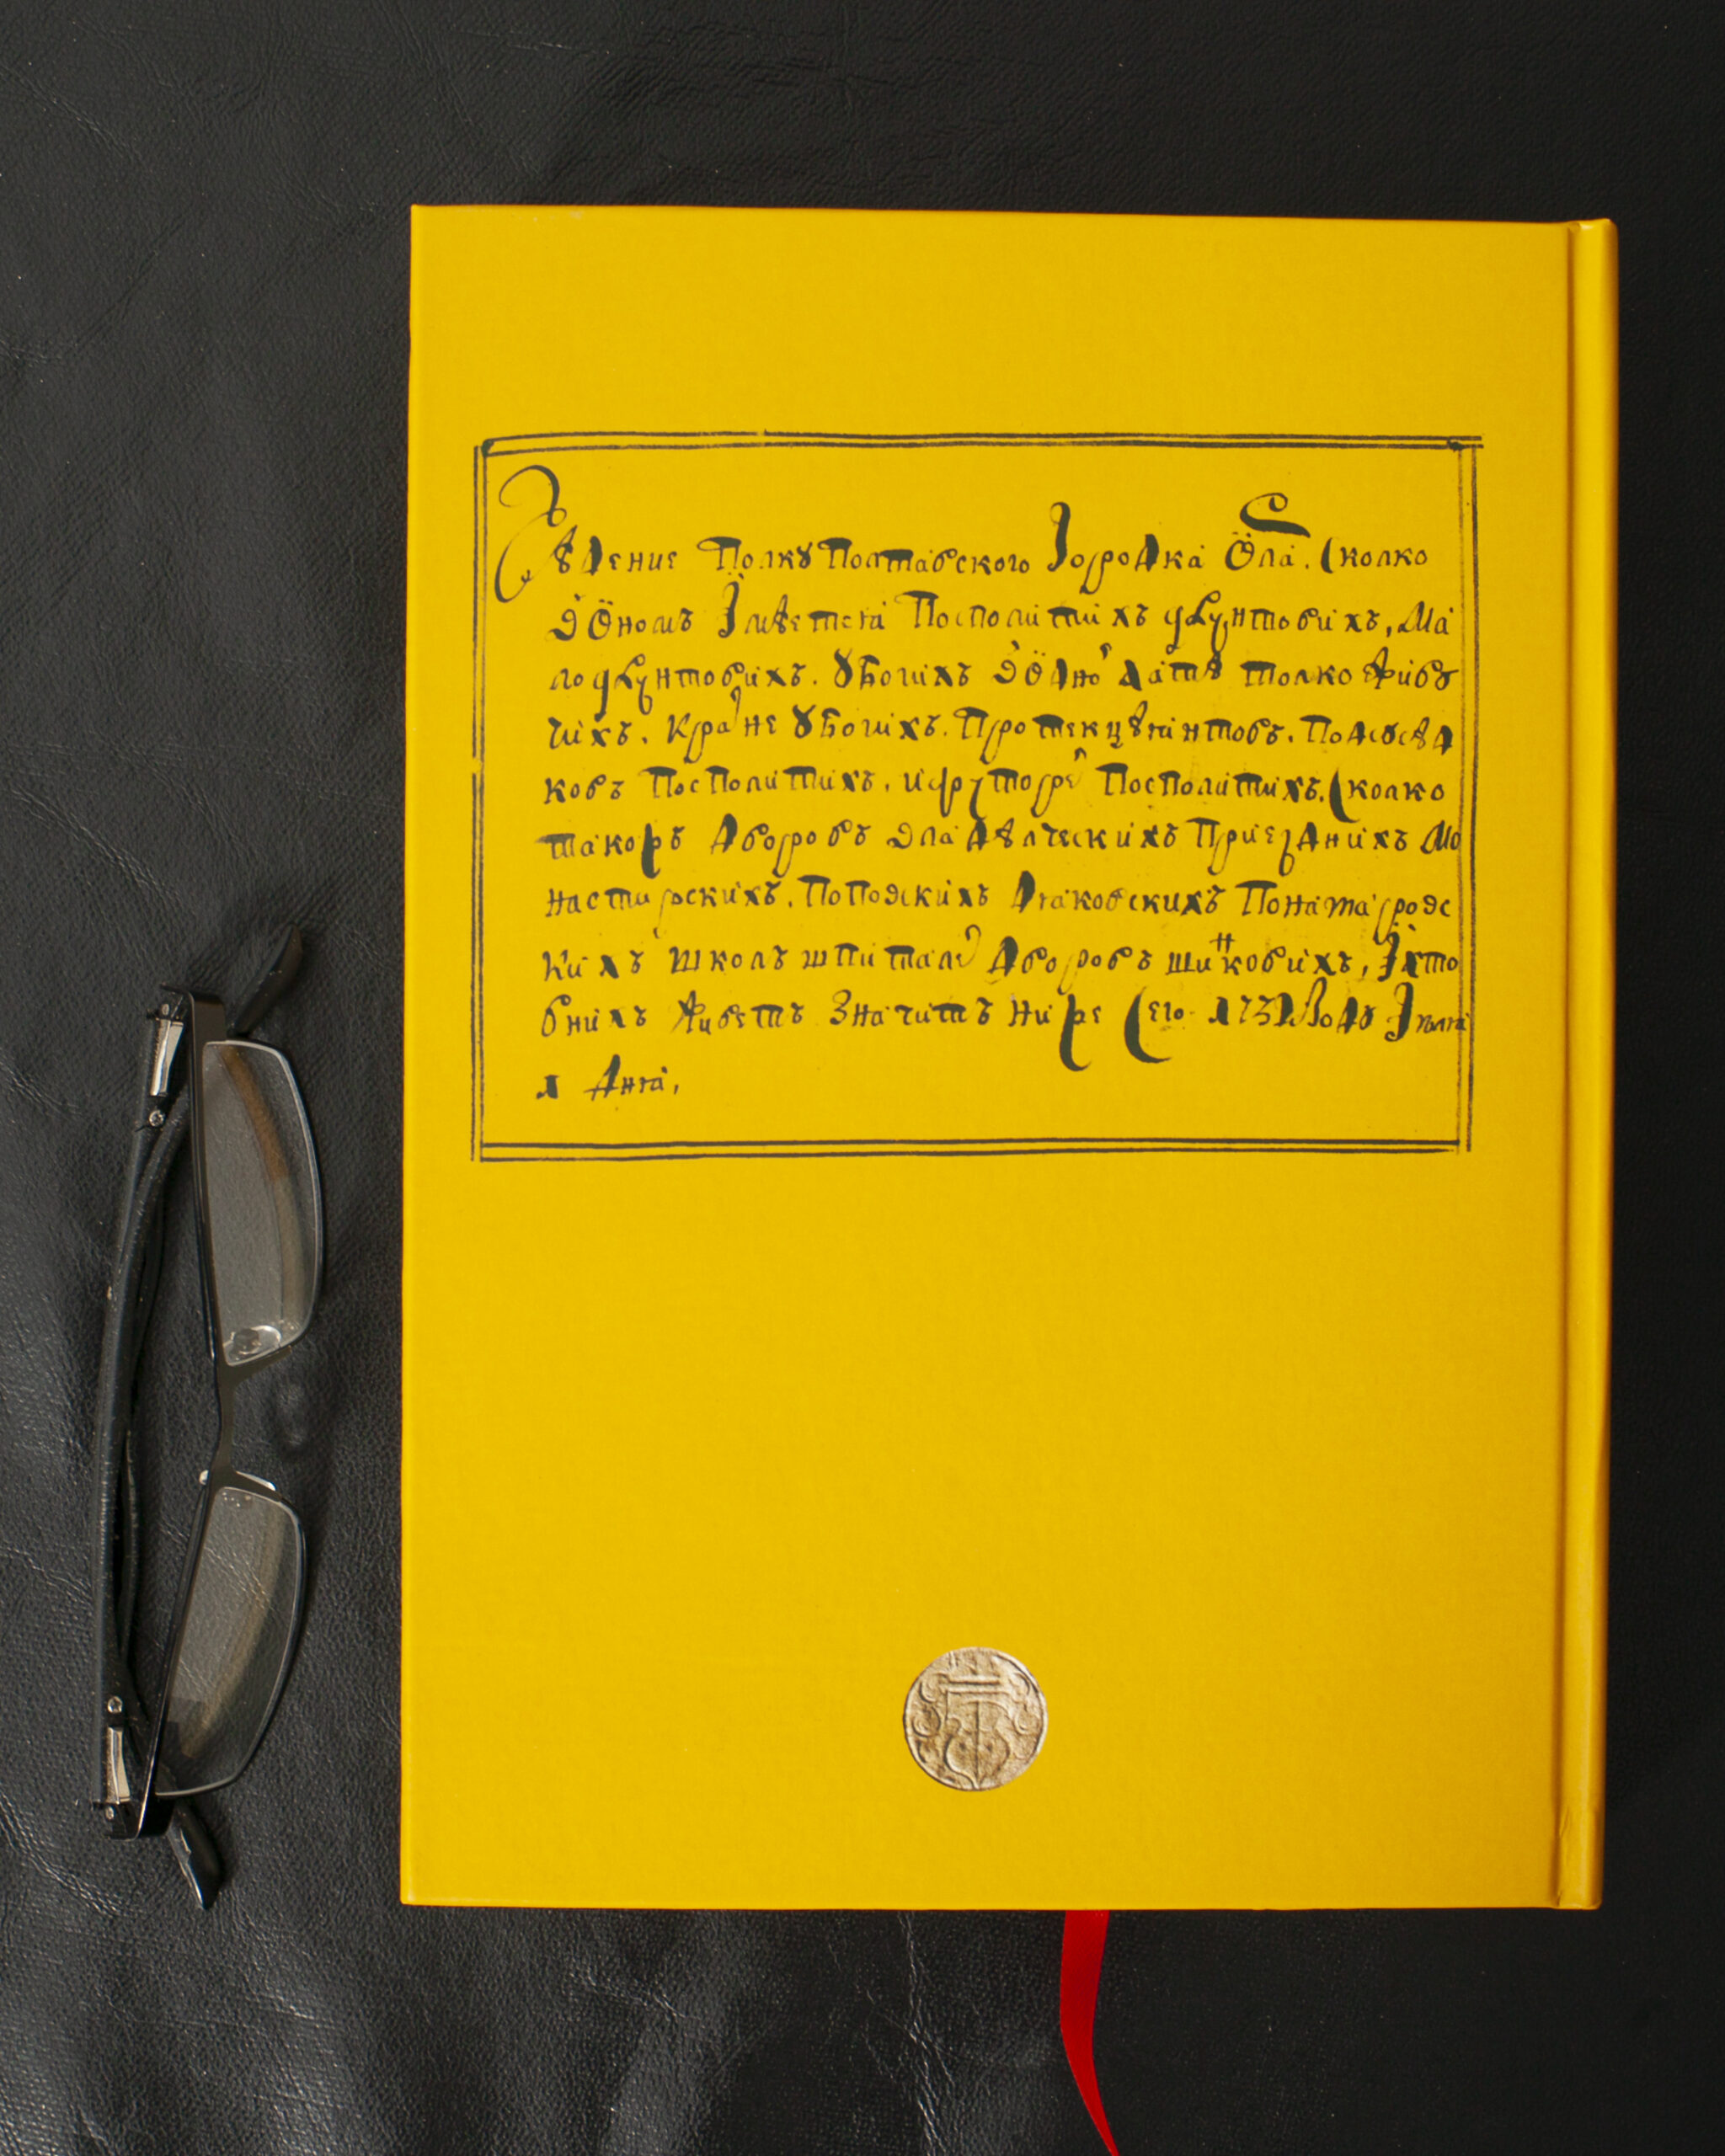 Вѣдение Полку Полтавского Городка Ӧла. Сколко
въ Ӧномъ Імѣетсѧ Посполитихъ кгрунтовихъ, Ма
ло кгрунтовихъ. Убогихъ въ Ӧдно латѣ толко живу
чихъ. Крайне Убогихъ. Протекцѣѧнтовъ. Подсусѣд
ковъ Посполитихъ. Посполитихъ. Сколко
такожъ Дворовъ Владѣлческихъ Приездних Мо
настирскихъ. Поповскихъ Дѧковскихъ Понамаровс
кихъ школъ шпиталей Дворовъ шинковихъ, Ӏ хто
внихъ живетъ Значитъ ниже Сего Году
Днѧ,